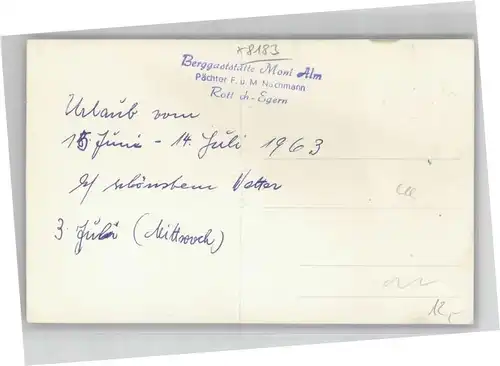 *8183
Berggaststätte Moni Alm
Pächter F. u. M. Nachmann
Rott ch-Egern
Urlaub vom
15. Juni - 14. Juli 1963
schönstem Wetter
3. Juli (Mittwoch)
12,-